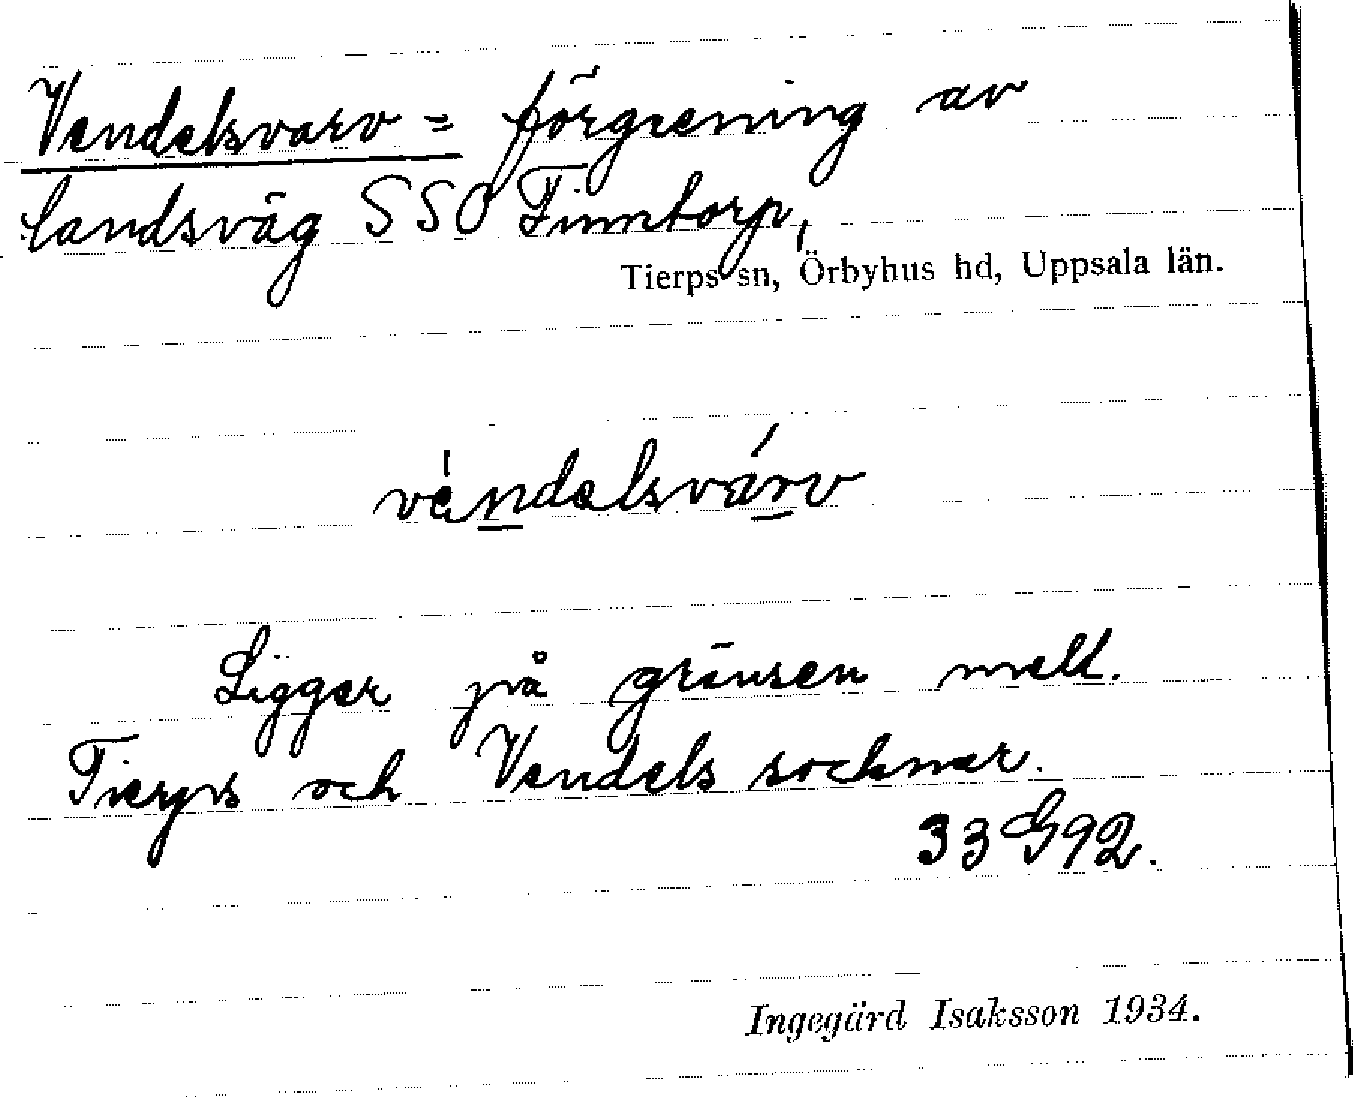 Vendelsvarv = förgrening av
landsväg SSO Finntorp,
Tierps sn, Örbyhus hd, Uppsala län.
vèndelsvárv
Ligger på gränsen mell.
Tierps och Vendels socknar.
33 G92.
Ingegärd Isaksson 1934.